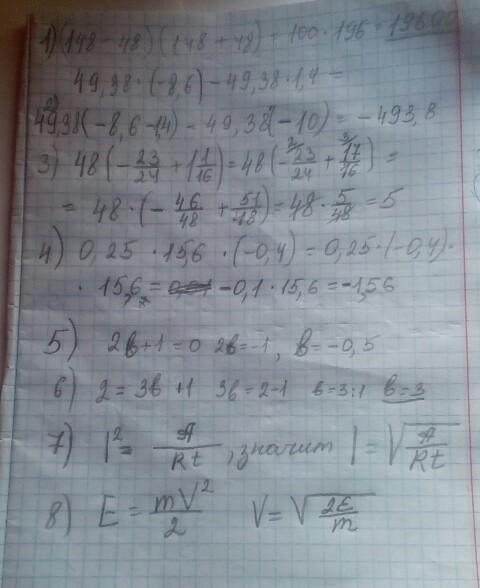 1) (148 - 48) (148 + 48) = 100 · 196 = 19600
49,38 · (-8,6) - 49,38 · 1,4 =
2)
49,38 (-8,6 - 1,4) = 49,38 (-10) = -493,8
3) 48 (- 23/24 + 1 1/16) = 48 (- 23/24 + 17/16) =
= 48 · (- 46/48 + 51/48) = 48 · 5/48 = 5
4) 0,25 · 15,6 · (-0,4) = 0,25 · (-0,4) ·
· 15,6 = -0,1 · 15,6 = -1,56
5) 2в + 1 = 0 2в = -1, в = -0,5
6) 2 = 3в + 1 3в = 2 - 1 в = 3 : 1 в = 3
7) I² = A/Rt, значит I = √(A/Rt)
8) E = mV²/2 V = √(2E/m)